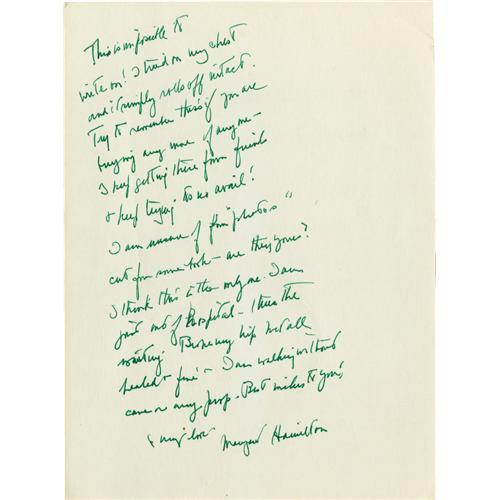 This is impossible to
write on! I tried on my chest
and it simply rolls off intact.
Try to remember this if you are
buying any more of anyone –
I keep getting these from friends
& keep trying to no avail!
I am unsure of from photos"
cut from some book – are they yours?
I think this is the only one. I am
just out of hospital – thus the
writing. Broke my hip but all
healed & fine – I am walking without
cane or any prop. Best wishes to you
& my love Margaret Hamilton